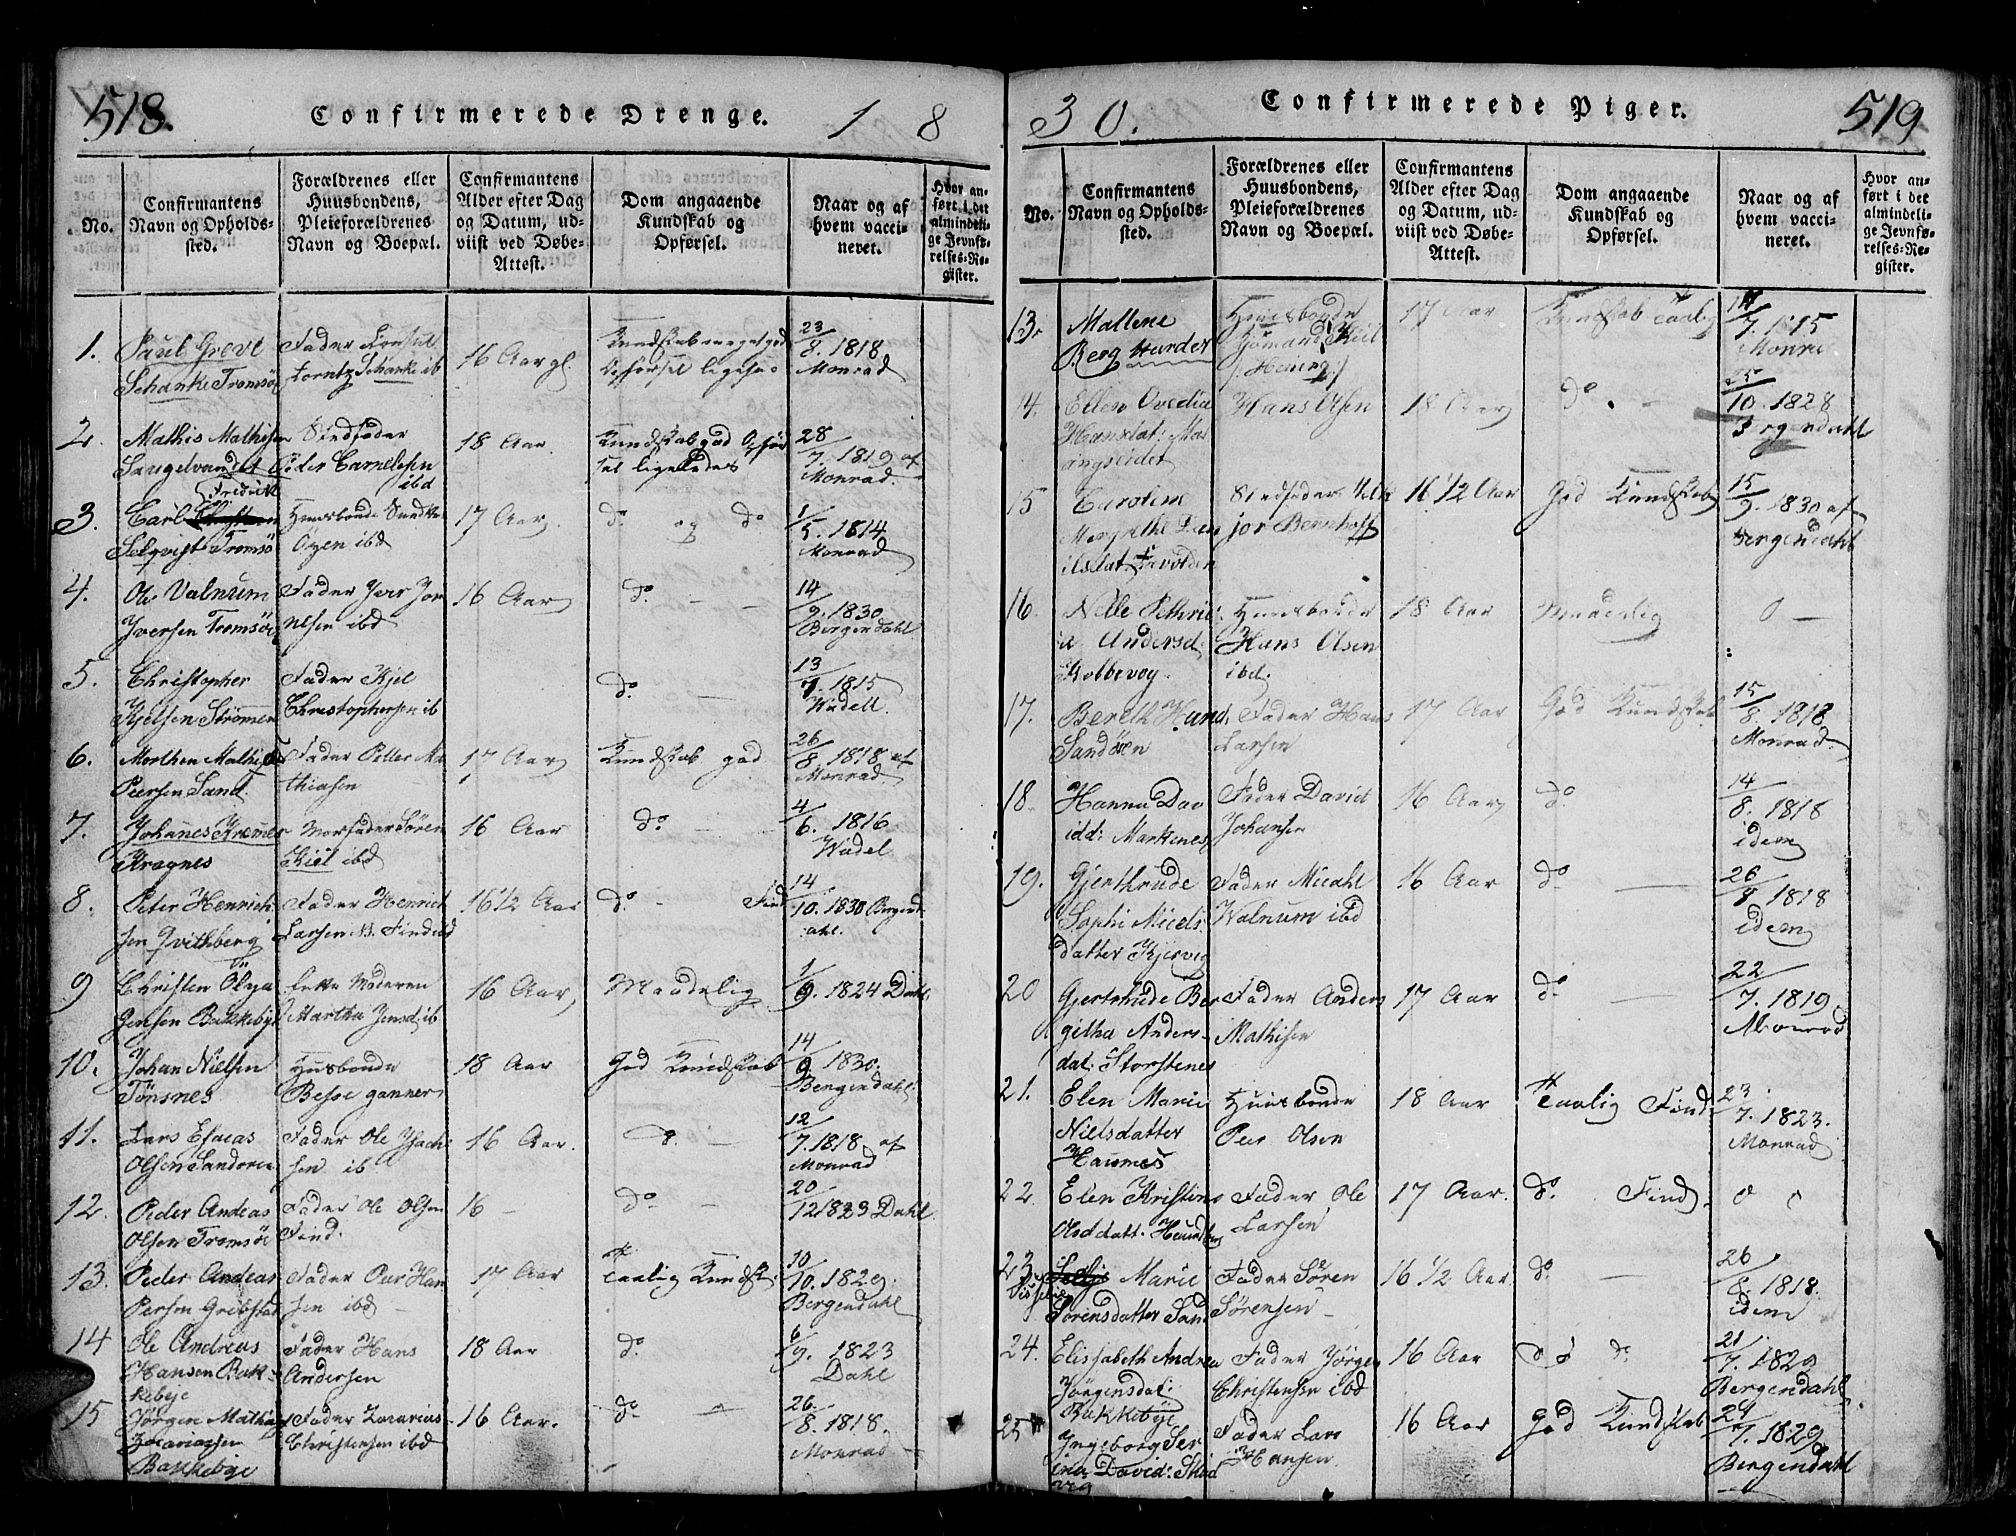 518.
Confirmerede Drenge.
1 8
No.
Confirmantens
Navn og Opholds-
sted.
Forældrenes eller
Huusbondens,
Pleieforældrenes
Navn og Boepæl.
Confirmantens
Alder efter Dag
og Datum, ud-
viist ved Døbe-
Attest.
Dom angaaende
Kundskab og
Opførsel.
Naar og af
hvem vacci-
neret.
Hvor an-
ført i det
almindeli-
ge Jevnfø-
relses-Re-
gister.
1.
Paul Greve
Schanke Tromsøe
Fader Consul
Lorntz Schanke ib
16 Aar gl.
Kundskab meget god
Opførsel ligesaa
23/8. 1818
Monrad
2.
Mathis Mathisen
Stedfader
Peder Cornelesen
ibd
18 Aar.
Kundskab god Opfør
sel ligeledes
28/7. 1819 af
Monrad.
3.
Fredrik
Carl
Selqvist Tromsø
Huusbonde
ibd
17 Aar
do. og do
1/5. 1814
Monrad
4.
Ole Valnum
Iversen Tromsøe
Fader Iver Jor
nesen ibd
16 Aar
do. — —
14/9. 1830
Bergendahl
5.
Christopher
Kjelsen Strømen
Fader Kjel
Christophersen ib
do. —
13/7. 1815
Wadell.
6.
Morthen Mathias
Peersen Sand.
Fader Petter Ma
thiasen
17 Aar
Kundskab god
26/8. 1818 af
Monrad.
7.
Johanes Kræmer
Kragnes
Morfader Søren
Kiil ibd
16 Aar
do. —
4/6. 1816
Wadel
8.
Peter Henrich
sen Qvithberg
Fader Henrich
Larsen
16 1/2 Aar
do. — Find
14/10. 1830 Bergend
ahl.
9
Christen
Jensen Bakkebye
Moderen
Martha Jensd. ib
16 Aar
Maadelig
1/9. 1824 Dahl.
10.
Johan Nielsen
Tønsnes
Husbonde
Besse ganner
18 Aar
God Kundskab
14/9 1830.
Bergendahl.
11.
Lars Esaias
Olsen Sandøren
Fader Ole Isach
sen ib
16 Aar.
do. —
12/7. 1818 af
Monrad
12.
Peder Andeas
Olsen Tromsøe
Fader Ole Olsen
Find.
16 —
do. —
20/12 1823 Dahl.
13.
Peder Andeas
Persen Grebstad
Fader Peer Han
sen ibd —
17 Aar
taalig Kundsk.
10/10. 1829.
Bergendahl
14
Ole Andreas
Hansen Bak-
kebye
Fader Hans
Andersen
18 Aar
do.
6/9. 1823
Dahl
15
Jørgen Mathias
Zacariassen
Bakkebye
Fader Zacarias
Christensen ibd
16 Aar.
do. —
26./8. 1818.
Monrad —
3 0.
Confirmerede Piger.
519
No.
Confirmantens
Navn og Opholds-
sted.
Forældrenes eller
Huusbondens,
Pleieforældrenes
Navn og Boepæl.
Confirmantens
Alder efter Dag
og Datum, ud-
viist ved Døbe-
Attest.
Dom angaaende
Kundskab og
Opførsel.
Naar og af
hvem vacci-
neret.
Hvor an-
ført i det
almindeli-
ge Jevnfø-
relses-Re-
gister.
13.
Mallene
Berg Harder
Huusbonde
Kiil
17 Aar
Kundskab taalig
7. 1815
Monrad
14.
Ellen Ovedia
Hansdat: Mal
angseidet
Hans Olsen
18 Aar
do. —
25/10. 1828
Bergendahl
15
Carolen
Margrethe Dan
ielsdat
Stedfader
16 1/2 Aar
God Kundskab
15/9. 1830 af
Bergendahl
16.
Pethric
a Andersd:
Kobbevog.
Huusbonde
Hans Olsen
ibd.
18 Aar
Maadelig
0 —
17.
Bereth Hansd.
Sandøren
Fader Hans
Larsen
17 Aar
God Kundskab
15/8. 1818
Monrad.
18.
Hanna Dav
idd: Markenes
Fader David
Johansen
16 Aar
do.
14/8. 1818
idem
19.
Gjerthrude
Sophi Micels
datter Kjervig
Fader Micahl
Walnum ibd
16 Aar
do. —
26/8 1818
idem
20
Gjerthrude Ber
githa Anders-
dat: Storstenes
Fader Anders
Mathisen
17 Aar
do. —
22/7. 1819.
Monrad
21.
Elen Marie
Nielsdatter
Haumes
Huusbonde
Peer Olsen
18 Aar
taalig Find.
23./7. 1823.
Monrad
22.
Elen Kristine
Olsddatt.
Fader Ole
Larsen
17 Aar.
do. Find.
0 0
23
Marie
Sørensdatter Sand
Fader Søren
Sørensen —
16 1/2 Aar.
do. —
26/8. 1818.
idem
24.
Elisabeth Andrea
Jørgensdat:
Bakkebye
Fader Jørgen
Christensen ibd
16 Aar
do.
21/7. 1829
Bergendahl.
25
Ingeborg Ser
ina David:
Fader Lars
Hansen.
16 Aar
God Kundskab
24/7. 1829
Bergendahl